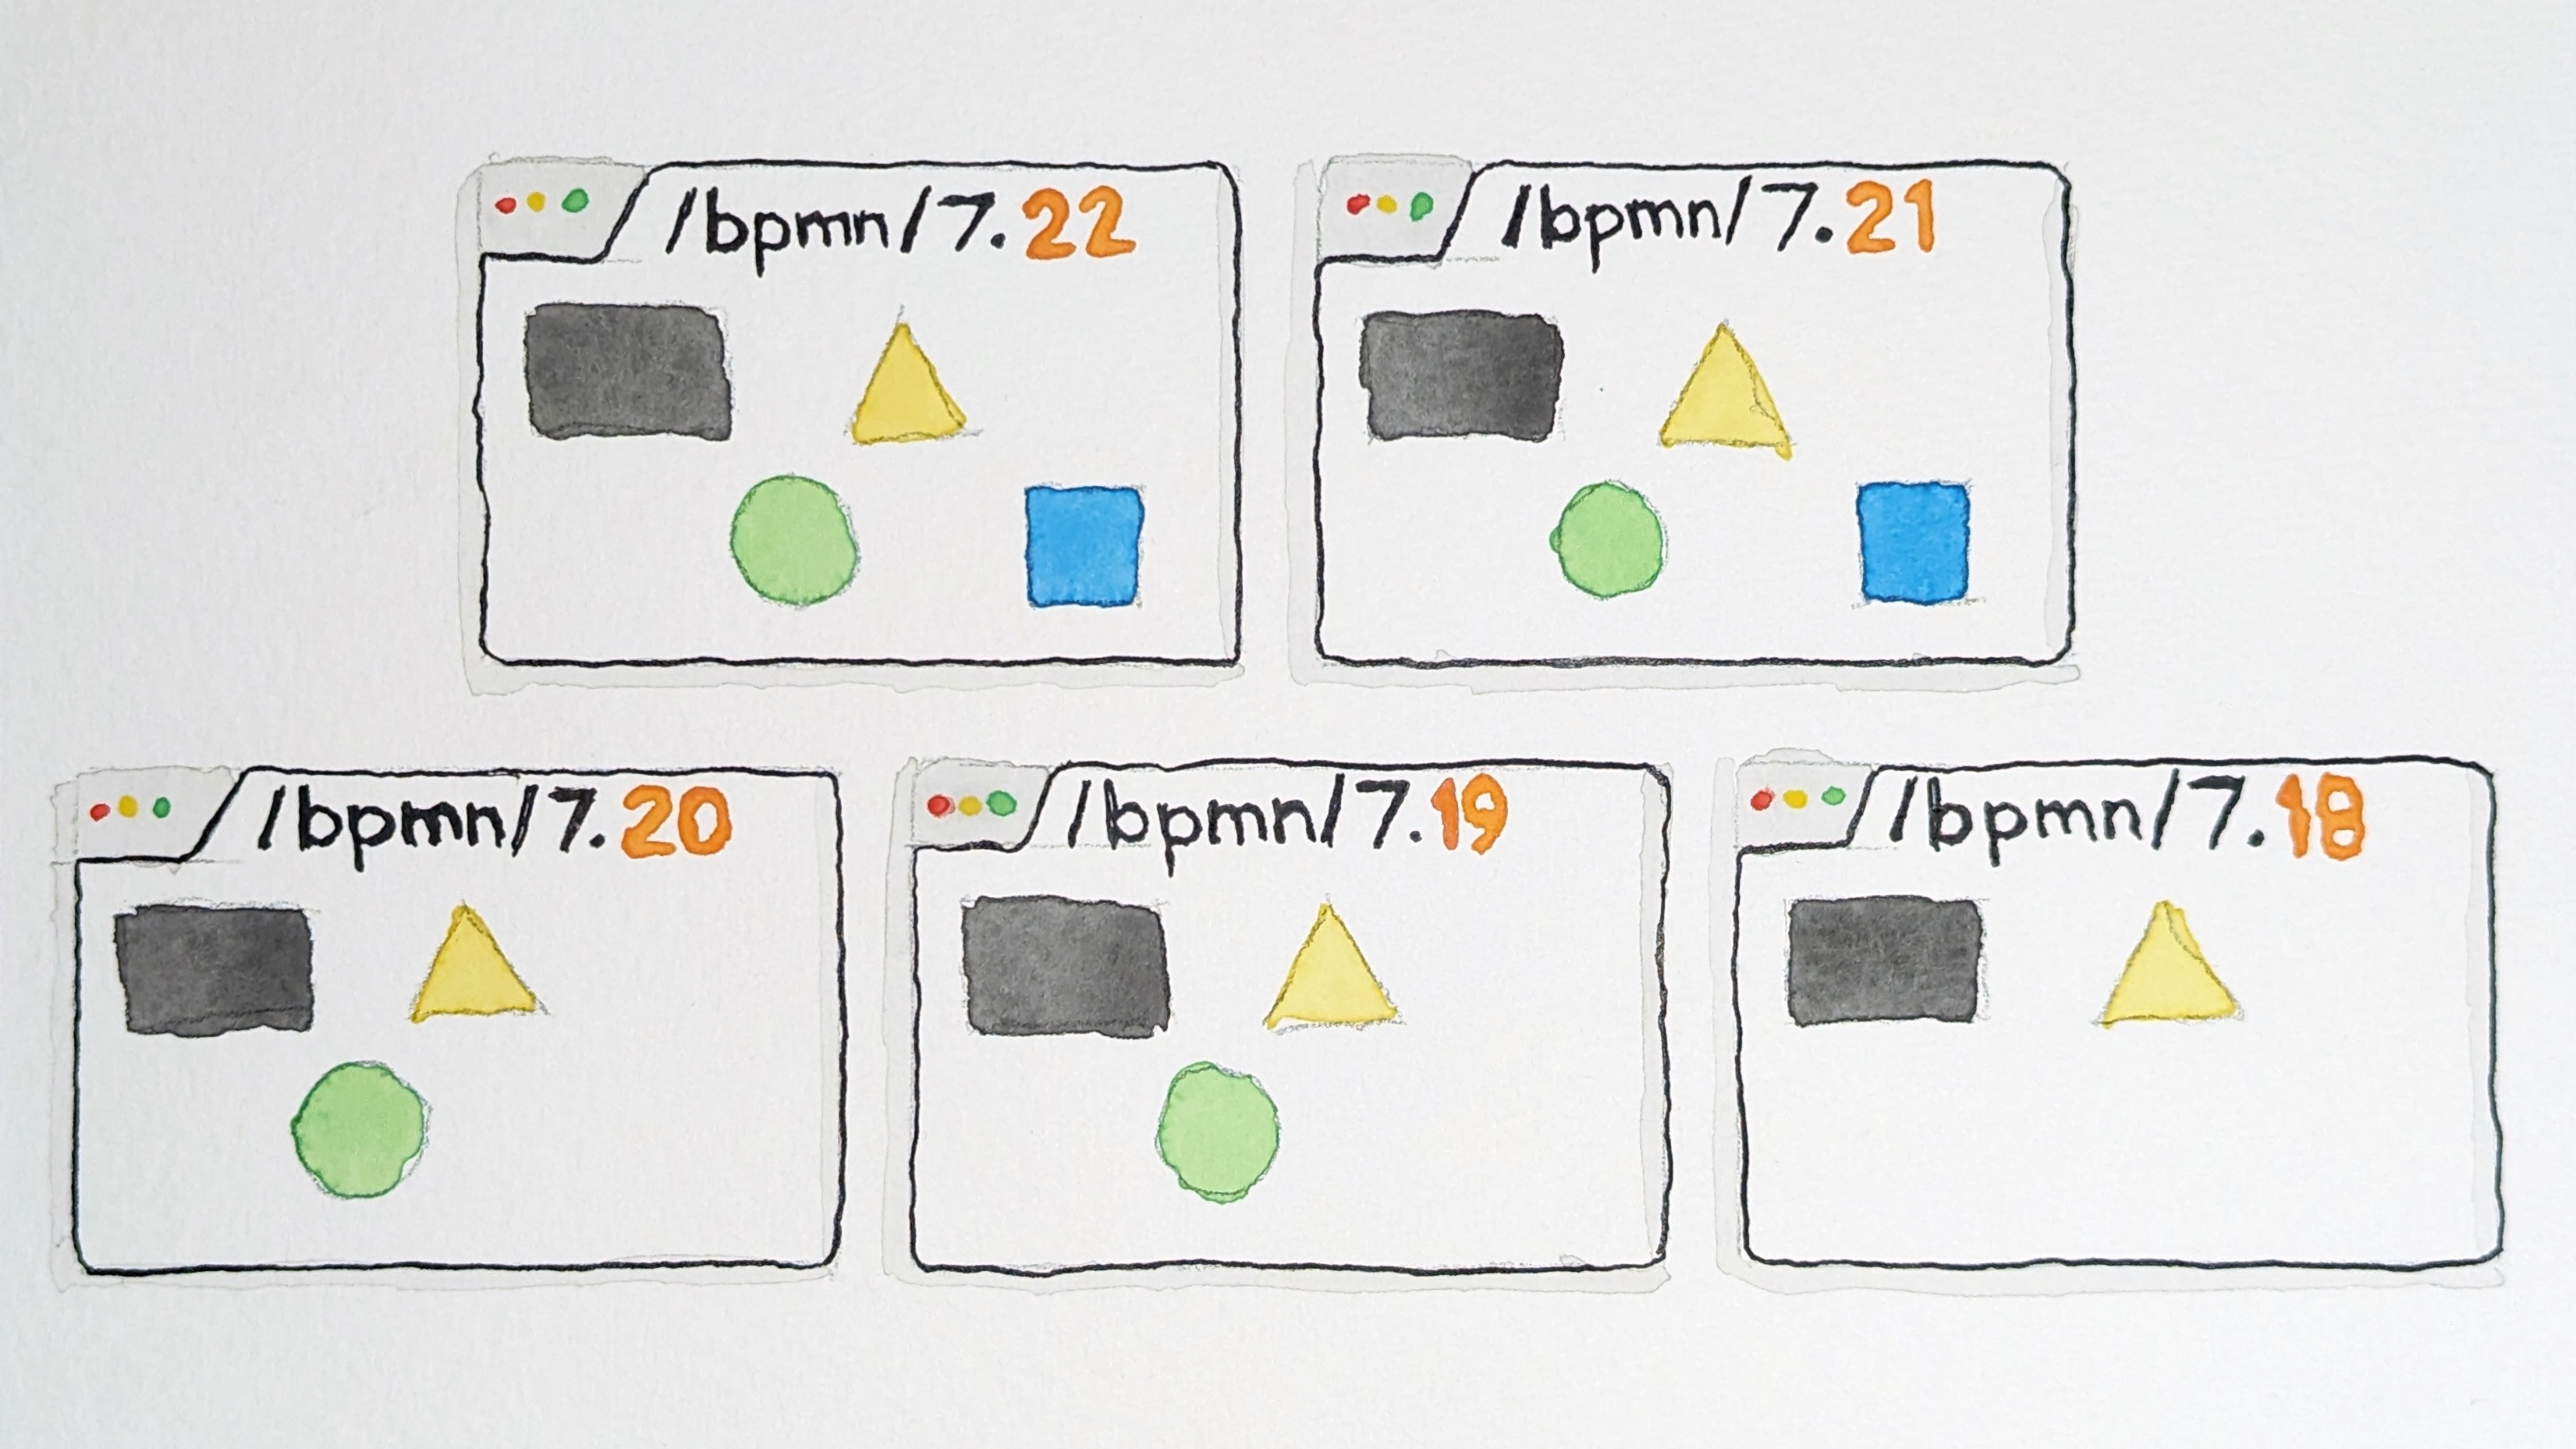 /bpmn/7.22
/bpmn/7.21
/bpmn/7.20
/bpmn/7.19
/bpmn/7.18